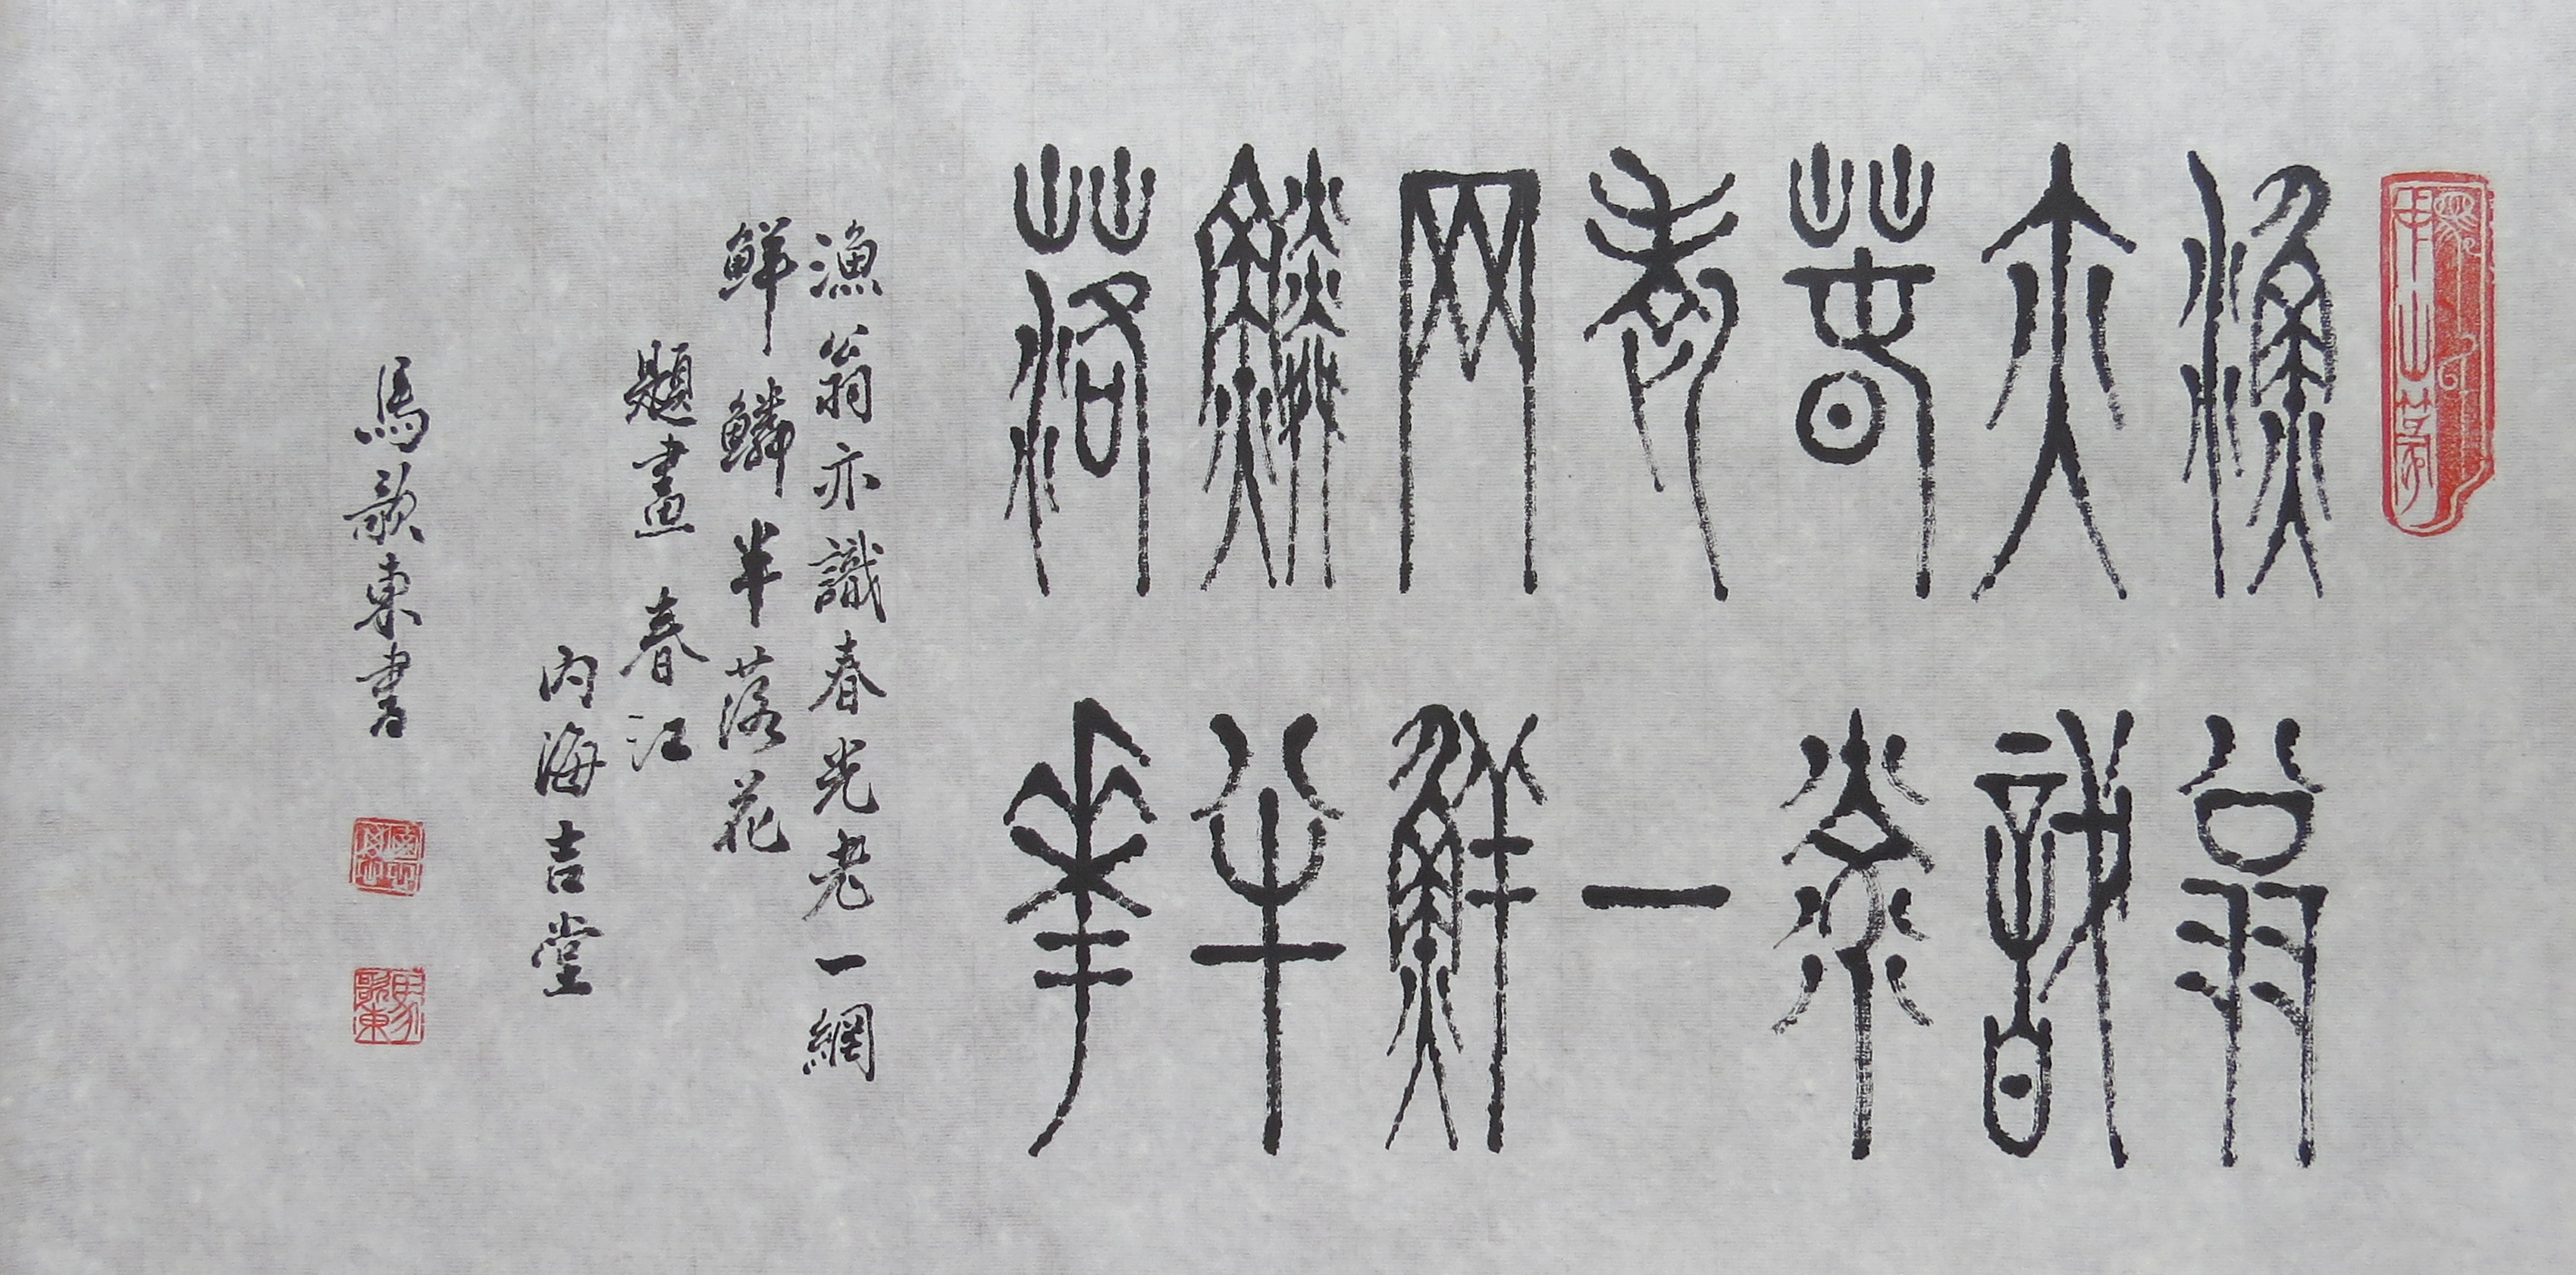 漁翁
亦識
春光
老一
网鮮
鱗半
落華
漁翁亦識春光老一網
鮮鱗半落花
題畫 春江
内海吉堂
馬歌東書
馬歌東